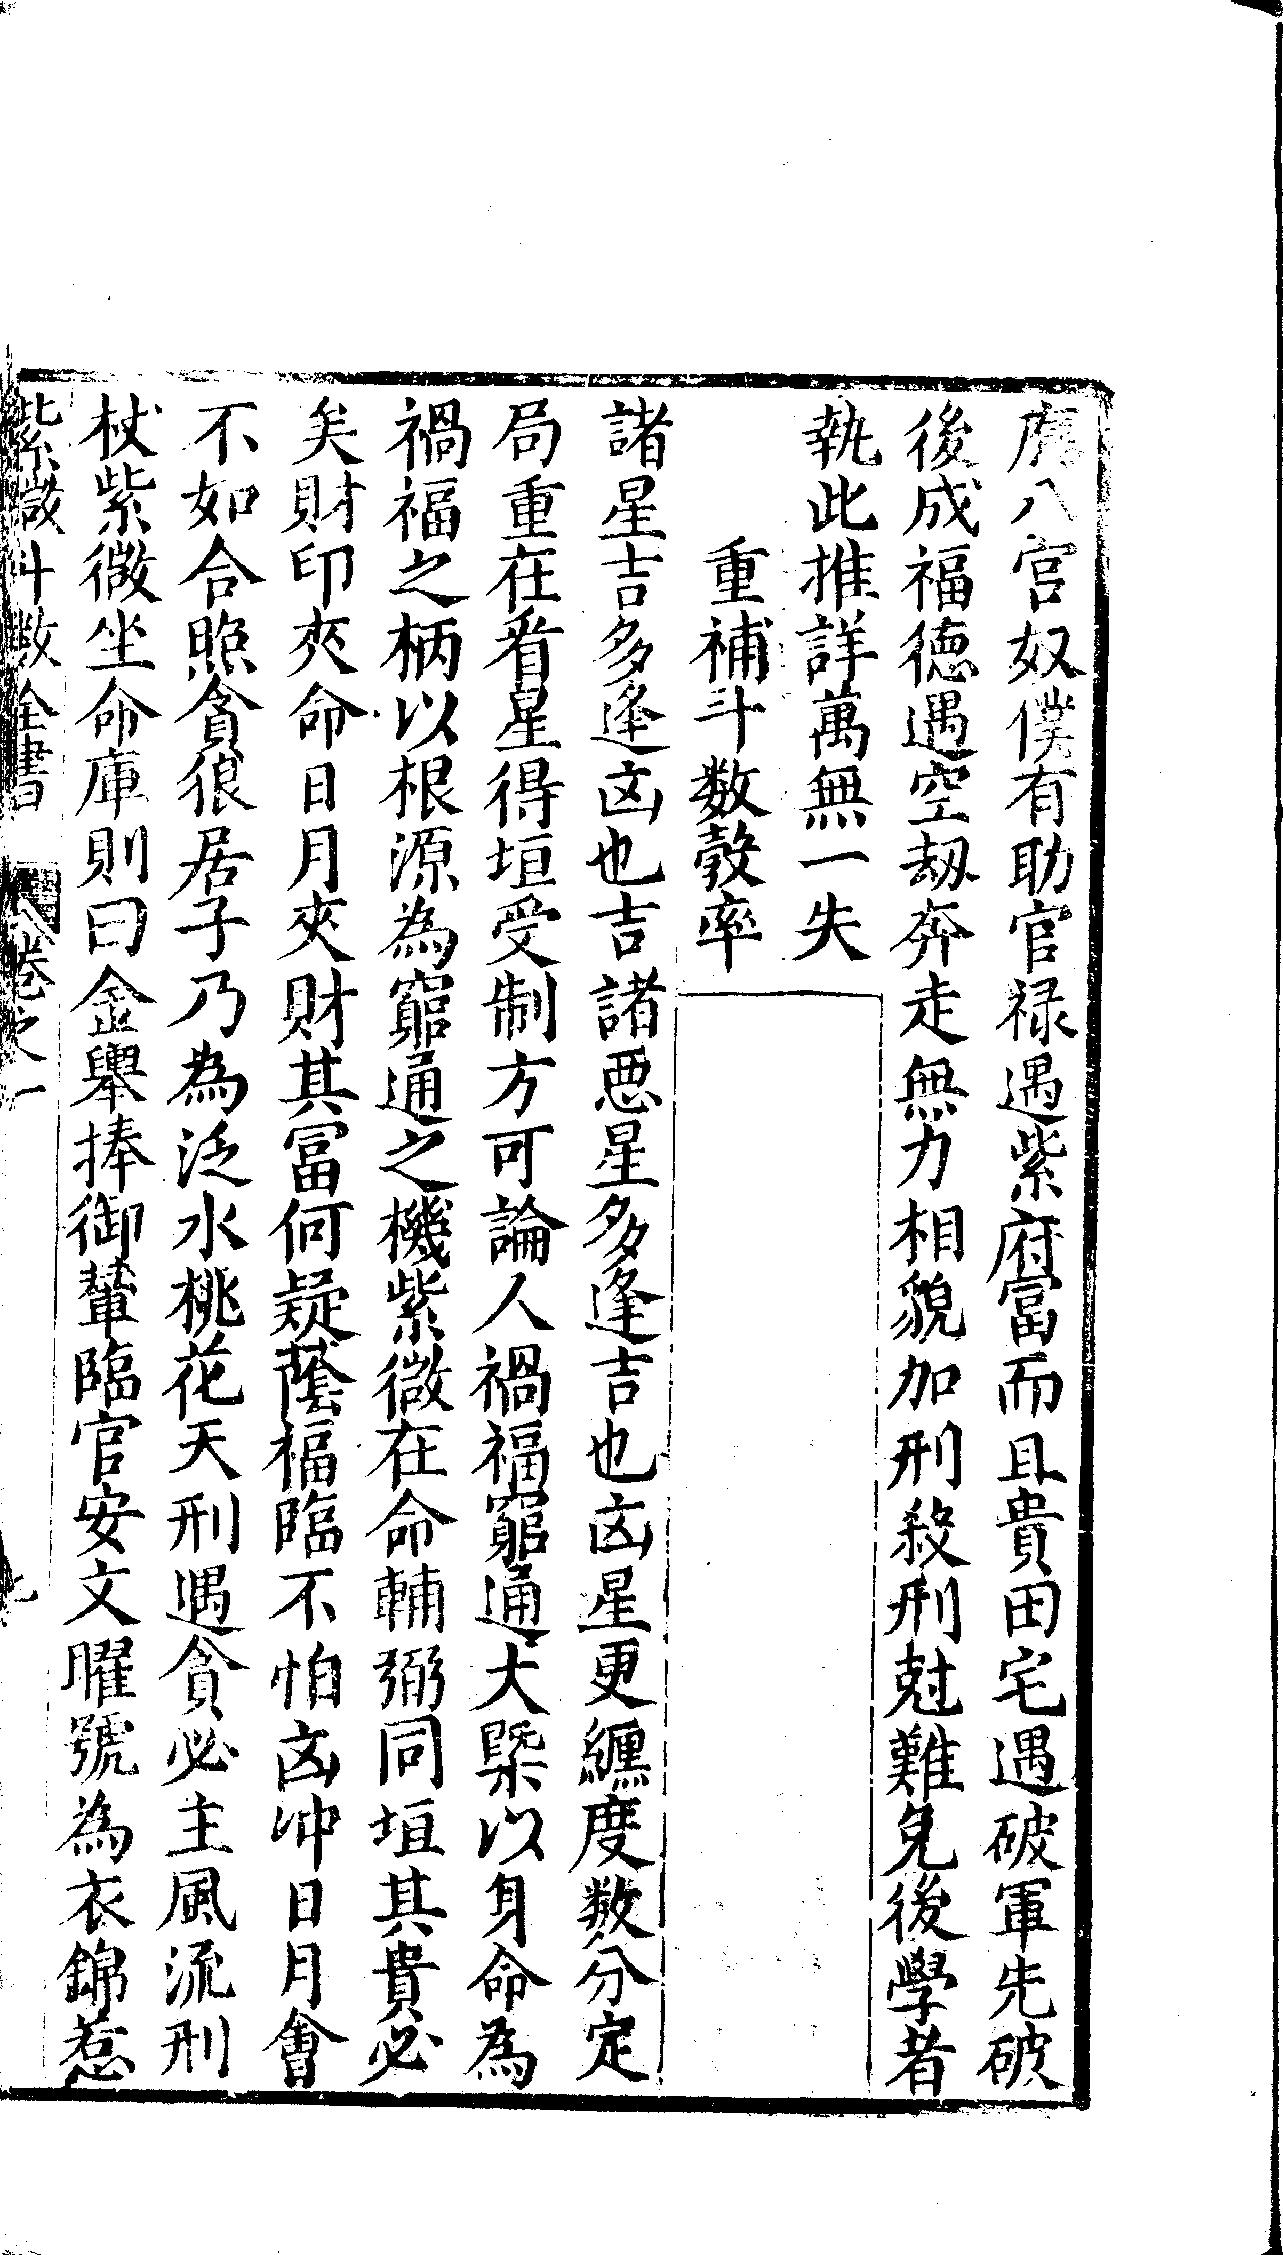 廣八宮奴僕有助官禄遇紫府富而且貴田宅遇破軍先破
後成福德遇空刼奔走無力相貌加刑殺刑尅難免後學者
執此推詳萬無一失
重補斗数彀率
諸星吉多逢凶也吉諸惡星多逢吉也凶星更纏度数分定
局重在看星得垣受制方可論人禍福窮通大槩以身命為
禍福之柄以根源為窮通之機紫微在命輔弼同垣其貴必
矣財印夾命日月夾財其冨何疑蔭福臨不怕凶冲日月會
不如合照貪狼居子乃為泛水桃花天刑遇貪必主風流刑
杖紫微坐命庫則曰金轝捧御輦臨官安文曜號為衣錦惹
紫微斗数全書 卷之一 七